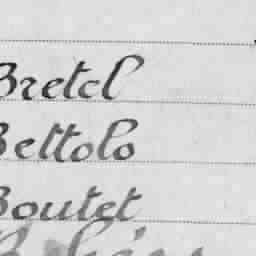 Bretel
Bettolo
Boutet